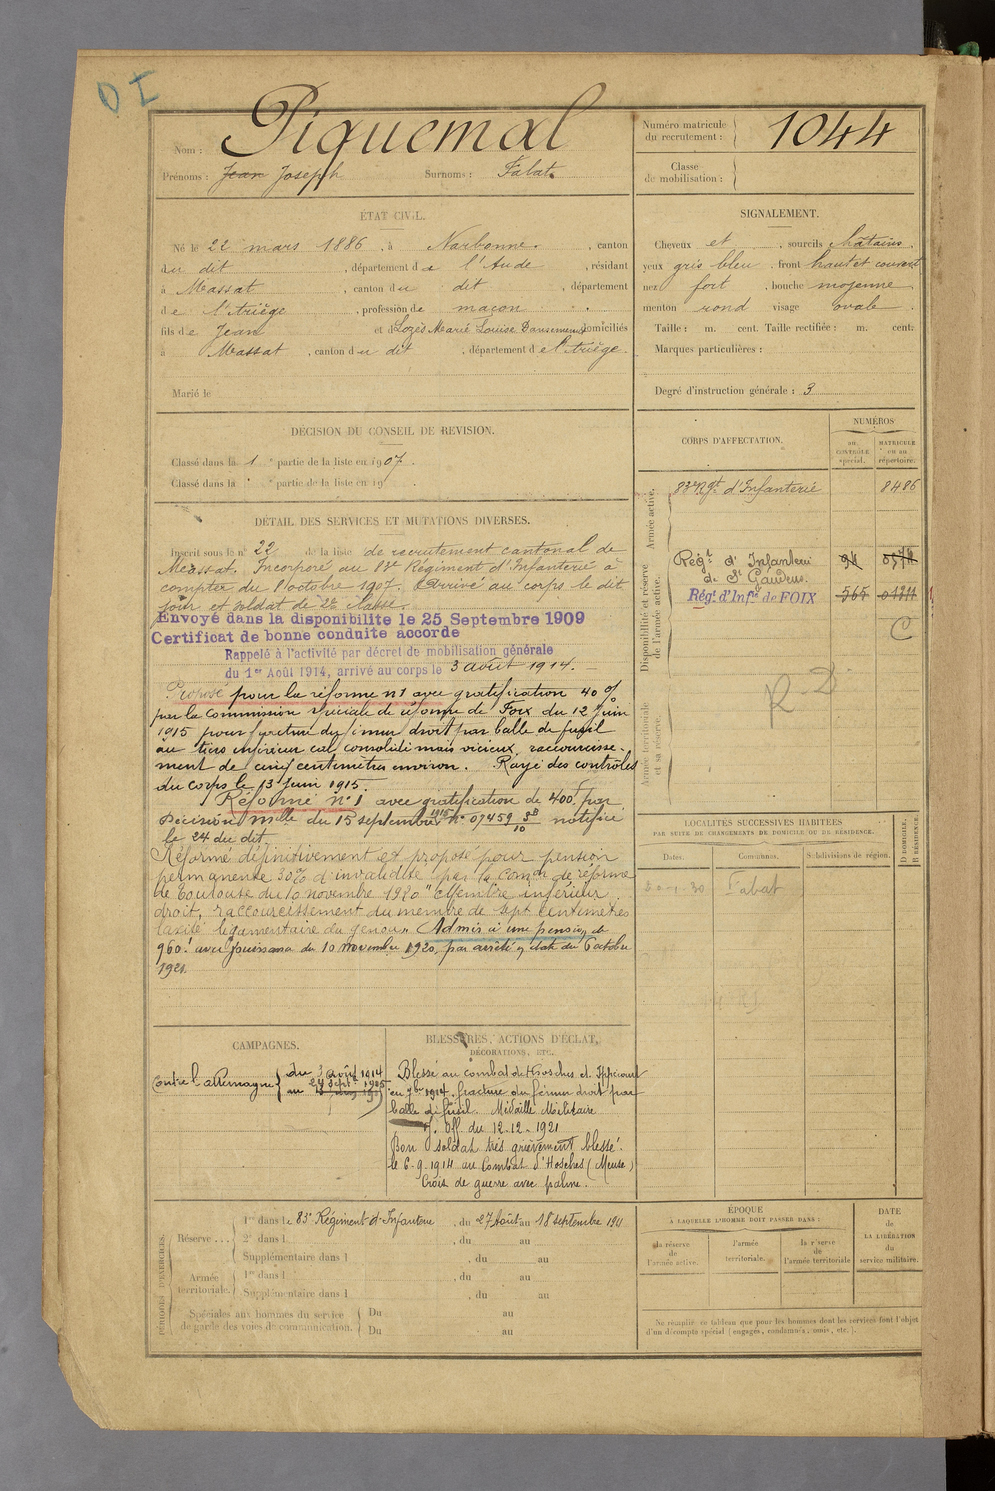 D I
Nom : Piquemal
Prénoms : Jean Joseph Surnoms : Fabat.
Numéro matricule du recrutement : 1044
Classe de mobilisation :
ÉTAT CIVIL.
Né le 22 mars 1886, à Narbonne, canton
du dit, département de l'Aude, résidant
à Massat, canton du dit, département
de l'Ariège, profession de maçon
fils de Jean et d Marie Louise domiciliés
à Massat, canton du dit, département de l'Ariège.
Marié le
SIGNALEMENT.
Cheveux et , sourcils châtains.
yeux gris bleu, front haut et couvert
nez fort, bouche moyenne
menton rond visage ovale
Taille : m. cent. Taille rectifiée : m. cent.
Marques particulières :
Degré d'instruction générale : 3
DÉCISION DU CONSEIL DE REVISION.
Classé dans la 1 partie de la liste en 1907.
Classé dans la partie de la liste en 19
CORPS D'AFFECTATION.
NUMÉROS
au CONTRÔLE spécial.
MATRICULE ou au répertoire.
Armée active.
83e Rgt d'Infanterie 8486
Disponibilité et réserve de l'armée active.
Régt d'Infanterie
de St Gaudens.
Régt d'Infie de FOIX 565
C
R. D
Armée territoriale et sa réserve.
DÉTAIL DES SERVICES ET MUTATIONS DIVERSES.
Inscrit sous le n° 22 de la liste de recrutement cantonal de
Massat. Incorporé au 83e Régiment d'Infanterie à
compter du 8 octobre 1907. Arrivé au corps le dit
jour et soldat de 2e classe.
Envoyé dans la disponibilite le 25 Septembre 1909
Certificat de bonne conduite accorde
Rappelé à l'activité par décret de mobilisation générale
du 1er Août 1914, arrivé au corps le 3 août 1914.
Proposé pour la réforme n°1 avec gratification 40 %
par la Commission spéciale de réforme de Foix du 12 Juin
1915 pour fracture du fémur droit par balle de fusil
au tiers inférieur cal consolidé mais vicieux, raccourcisse-
ment de cinq centimètres environ. Rayé des contrôles
du corps le 13 Juin 1915.
Réformé n°1 avec gratification de 400f par
Décision Mlle du 15 septembre 1915 n° 07459 notifiée
le 24 du dit.
Réformé définitivement et proposé pour pension
permanente 30% d'invalidité par la Comon de réforme
de Toulouse du 10 novembre 1920 "Membre inférieur
droit, raccourcissement du membre de sept centimètres
laxité ligamentaire du genou". Admis à une pension de
960f avec jouissance du 10 novembre 1920, par arrêté en date du 6 octobre
1921.
LOCALITÉS SUCCESSIVES HABITÉES
PAR SUITE DE CHANGEMENTS DE DOMICILE OU DE RÉSIDENCE.
Dates. Communes. Subdivisions de région. D DOMICILE. R RÉSIDENCE.
30 Fabat
CAMPAGNES.
Contre l'allemagne du 3 août 1914
au 24 sept. 1915
BLESSURES, ACTIONS D'ÉCLAT,
DÉCORATIONS, ETC.
Blessé au combat de
en 7bre 1914, fracture du fémur droit par
balle de fusil. Médaille Militaire
J. Off. du 12-12-1921
Bon soldat très grièvement blessé.
le 6-9-1914 au Combat d'Hosches (Meuse)
Croix de guerre avec palme.
PÉRIODES D'EXERCICES.
Réserve ... 1re dans le 83e Régiment d'Infanterie, du 27 Août au 18 septembre 191
2e dans l , du au
Supplémentaire dans l , du au
Armée territoriale. 1re dans l , du au
Supplémentaire dans l , du au
Spéciales aux hommes du service de garde des voies de communication. Du au
Du au
ÉPOQUE
À LAQUELLE L'HOMME DOIT PASSER DANS :
la réserve de l'armée active.
l'armée territoriale.
la réserve de l'armée territoriale
DATE de LA LIBÉRATION du service militaire.
Ne remplir ce tableau que pour les hommes dont les services font l'objet
d'un décompte spécial (engagés, condamnés, omis, etc.).